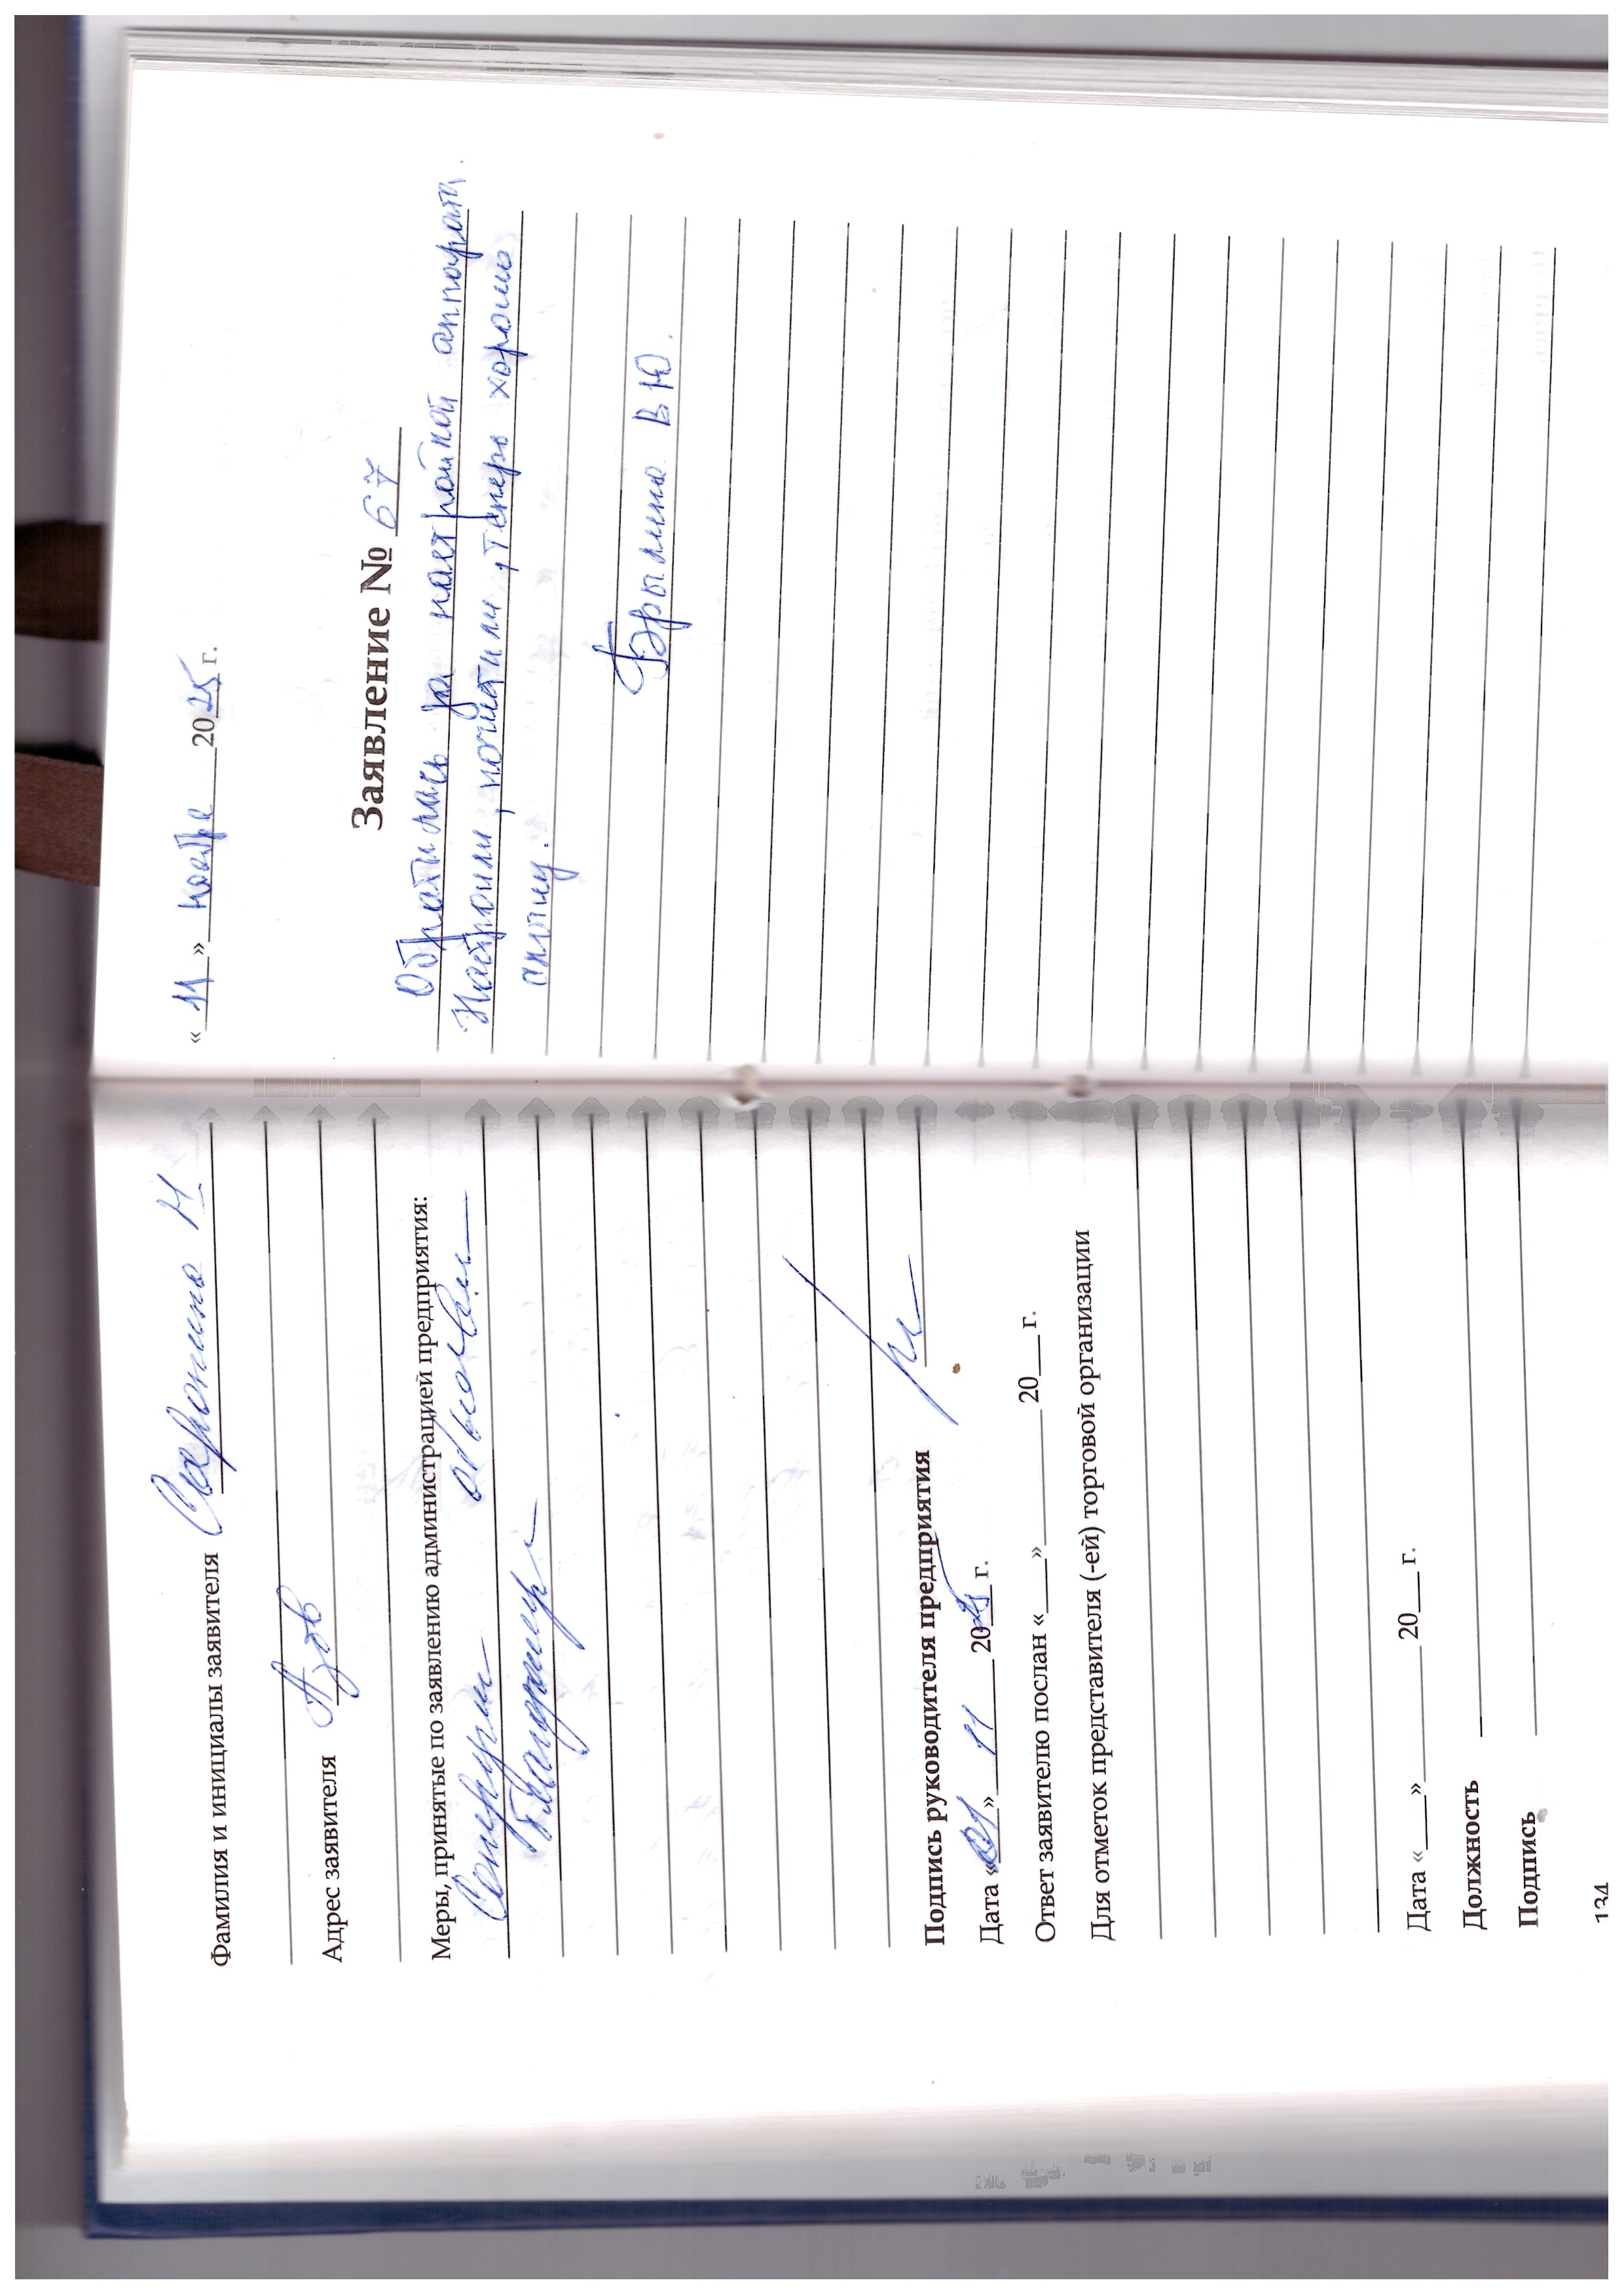 Фамилия и инициалы заявителя Сафонина Н
Адрес заявителя Азов
Меры, принятые по заявлению администрацией предприятия:
объявлена
благодарность
Подпись руководителя предприятия
Дата «01» 11 2025 г.
Ответ заявителю послан «___» ________ 20___ г.
Для отметок представителя (-ей) торговой организации
Дата «___» ________ 20___ г.
Должность
Подпись
134
« 11 » ноября 2025 г.
Заявление № 67
Обратилась за настройкой аппарата.
Настроили, почистили, теперь хорошо
слышу.
В Ю.